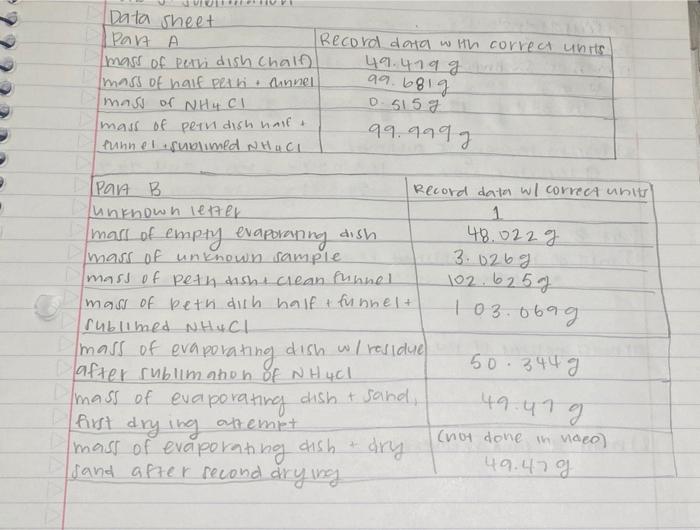 Data sheet
Part A Record data with correct units
mass of petri dish (half) 49.479 g
mass of half petri + funnel 99.681g
mass of NH4Cl 0.515g
mass of petri dish half + 99.999g
funnel + sublimed NH4Cl
Part B Record data w/ correct units
unknown letter 1
mass of empty evaporating dish 48.022g
mass of unknown sample 3.026g
mass of petri dish + clean funnel 102.625g
mass of petri dish half + funnel + 103.069g
sublimed NH4Cl
mass of evaporating dish w/ residue 50.344g
after sublimation of NH4Cl
mass of evaporating dish + sand, 49.47g
first drying attempt
mass of evaporating dish + dry (not done in video)
sand after second drying 49.47g